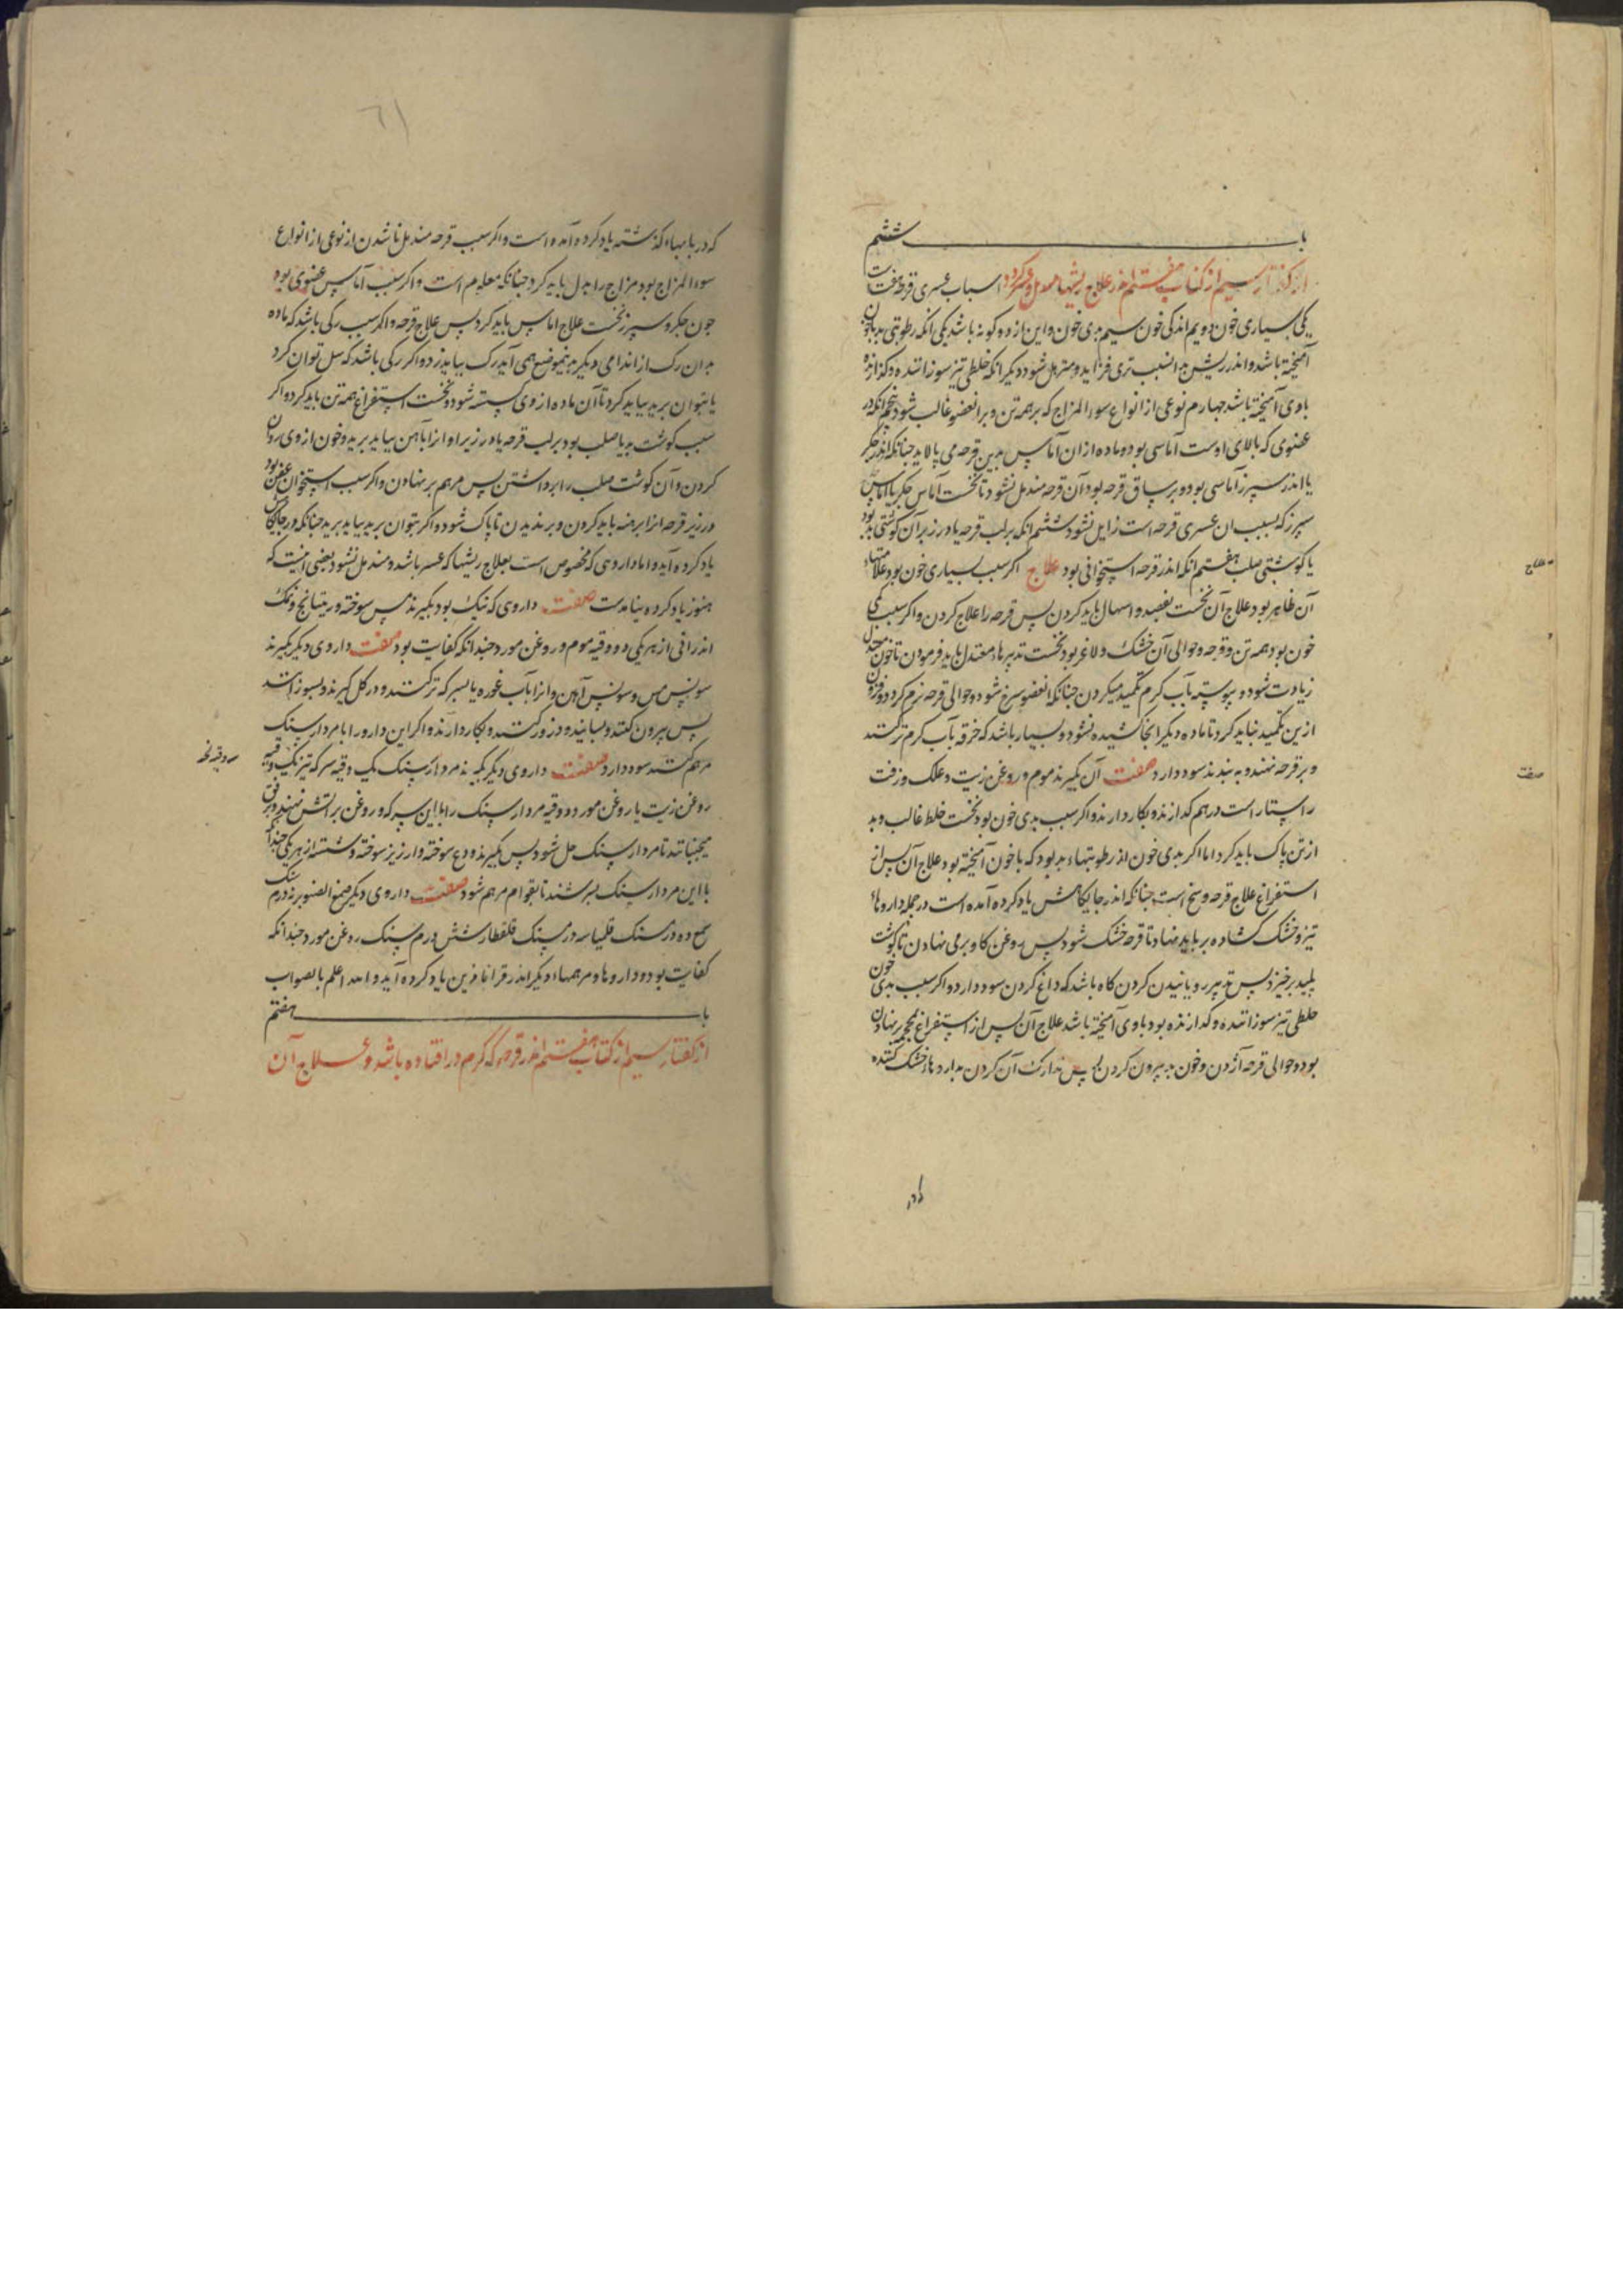 باب ششم
از گفتار سیم از کتاب هفتم اندر علاج ریشها اسباب عسری قرحه هفت است
یکی بسیاری خون دویم اندکی خون سیم بدی خون و این از دو کونه باشد یکی انکه رطوبتی بد با خون
آمیخته باشد و اندر ریش بدانسبب تری فزاید و مترهل شود و دیکر انکه خلطی تیز سوزاننده و کدازنده
باوی آمیخته باشد جهارم نوعی از انواع سوء المزاج که بر همه تن و بر انعضو غالب شود پنجم انکه در
عضوی که بالای اوست آماسی بود و ماده از ان آماس بدین قرحه می پالاید جنانکه اندر جکر
یا اندر سپرز آماسی بود و بر ساق قرحه بود آن قرحه مندمل نشود تا نخست آماس جکر یا آماس
سپرز که بسبب ان عسری قرحه است زایل نشود ششم انکه بر لب قرحه یا در زیر آن کوشتی بد بود
یا کوشتی صلب هفتم انکه اندر قرحه استخوانی بود علاج اکر سبب بسیاری خون بود علامتهاء
آن ظاهر بود علاج آن نخست بفصد و اسهال باید کردن پس قرحه را علاج کردن و اکر سبب کمی
خون بود همه تن و قرحه و حوالی آن خشک و لاغر بود نخست تدبیرهاء معتدل باید فرمودن تا خون
زیادت شود و پیوسته بآب کرم تکمید میکردن جنانکه انعضو سرخ شود و حوالی قرحه نرم کردد و فزون
ازین تکمید نباید کرد تا ماده دیکر انجا کشیده نشود و بسیار باشد که خرقه بآب کرم تر کنند
و بر قرحه نهند و به بندند سود دارد صفت آن بکیرند موم و روغن زیت و علک و زفت
راستاراست درهم کدازند و بکار دارند و اکر سبب بدی خون بود نخست خلط غالب و بد
از تن پاک باید کرد اما اکر بدی خون از رطوبتهاء بد بود که با خون آمیخته بود علاج آن پس از
استفراغ علاج قرحه وسخ است جنانکه اندر جایکاهش یاد کرده آمده است در جمله داروهاء
تیز و خشک کننده بر باید نهاد تا قرحه خشک شود پس روغن کاو بر می نهادن تا کوشت
پلید برخیزد پس تدبیر رویانیدن کردن کاه باشد که داغ کردن سود دارد و اکر سبب بدی خون
خلطی تیز سوزاننده و کدازنده بود باوی آمیخته باشد علاج آن پس از استفراغ محجمه برنهادن
بود و حوالی قرحه آژدن و خون بد بیرون کردن پس تدارک آن کردن بداروهاء خشک کننده
علاج
صفت
که در بابهاء کذشته یاد کرده آمده است و اکر سبب قرحه مندمل ناشدن از نوعی از انواع
سوء المزاج بود مزاج را بدل باید کرد جنانکه معلوم است و اکر سبب آماس عضوی بود
جون جکر و سپرز نخست علاج اماس باید کرد پس علاج قرحه و اکر سبب رکی باشد که ماده
بدان رک از اندامی دیکر بدینموضع همی آید رک بباید زد و اکر رکی باشد که سل توان کرد
یا بتوان برید بباید کرد تا آن ماده از وی کسسته شود و نخست استفراغ همه تن باید کرد و اکر
سبب کوشت بد یا صلب بود بر لب قرحه یا در زیر او انرا بآهن بباید برید و خون از وی روان
کردن و آن کوشت صلب را برداشتن پس مرهم بر نهادن و اکر سبب استخوان عفن بود
در زیر قرحه انرا برهنه باید کردن و برندیدن تا پاک شود و اکر بتوان برید بباید برید جنانکه در جایکاهش
یاد کرده آید و اما داروهی که مخصوص است بعلاج ریشها که عسر باشد و مندمل نشود بعضی انیست که
هنوز یاد کرده نیامدست صفت داروی که نیک بود بکیرند مس سوخته و ریتیانج و نمک
اندرانی از هر یکی دو وقیه موم و روغن مورد جندانکه کفایت بود صفت داروی دیکر بکیرند
سونس مس و سونس آهن و انرا بآب غوره یا بسرکه تر کنند و در کل کیرند و بسوزانند
پس بیرون کنند و بسایند و ذرور کنند و بکار دارند و اکر این دارو را با مردارسنک
مرهم کنند سود دارد صفت داروی دیکر بکیرند مردارسنک یک وقیه سرکه تیز
روغن زیت یا روغن مورد دو وقیه مردارسنک را با این سرکه و روغن بر آتش نهند
میجنبانند تا مردارسنک حل شود پس بکیرند ودع سوخته و ارزیز سوخته و شسته از هر یکی
با این مردارسنک بسرشند تا بقوام مرهم شود صفت داروی دیکر صمغ الصنوبر نه درم سنک
شمع ده درمسنک قلیمیا سه درمسنک قلقطار شش درم سنک روغن مورد جندانکه
کفایت بود و داروها و مرهمهاء دیکر اندر قراباذین یاد کرده آید و الله اعلم بالصواب
باب هفتم
از گفتار سیم از کتاب هفتم اندر قرحه که کرم در افتاده باشد و علاج آن